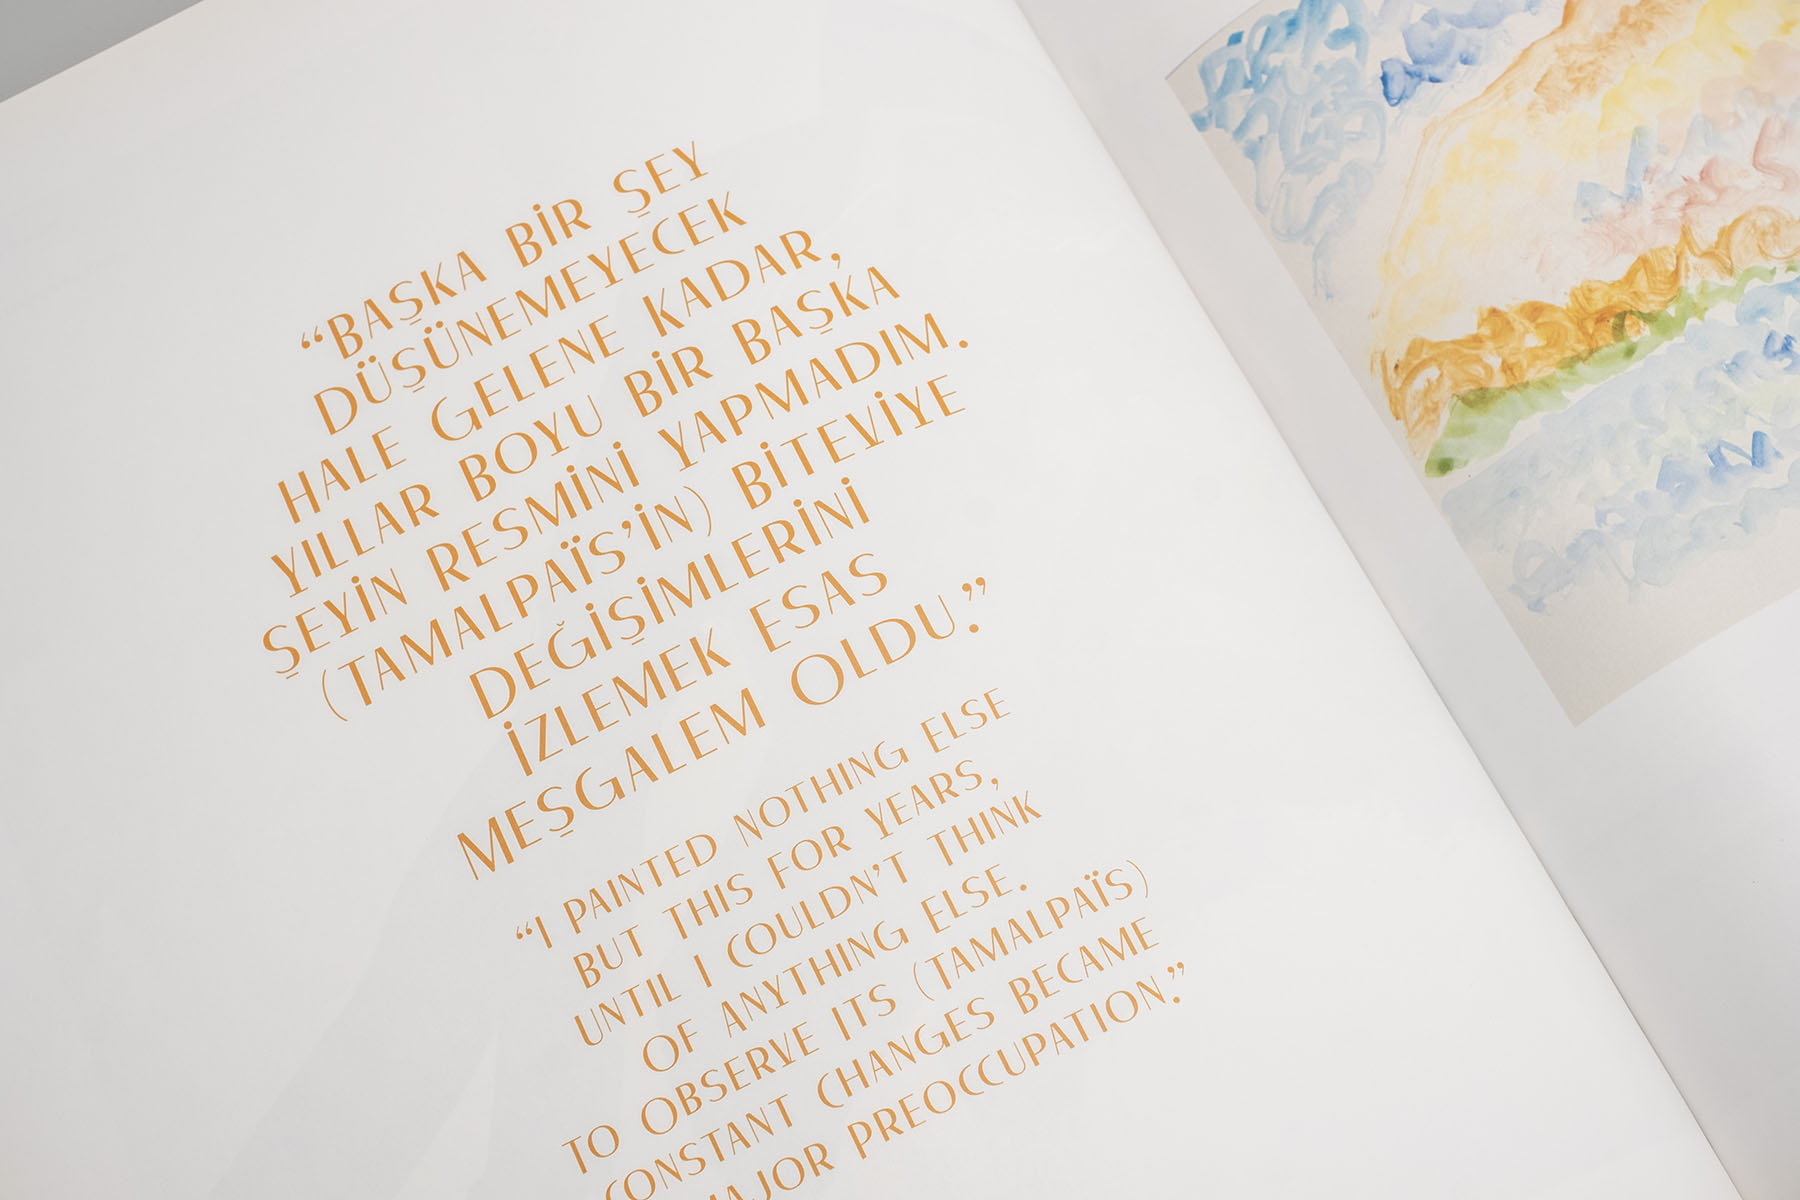 “BAŞKA BİR ŞEY
DÜŞÜNEMEYECEK
HALE GELENE KADAR,
YILLAR BOYU BİR BAŞKA
ŞEYİN RESMİNİ YAPMADIM.
(TAMALPAÏS’İN) BİTEVİYE
DEĞİŞİMLERİNİ
İZLEMEK ESAS
MEŞGALEM OLDU.”
“I PAINTED NOTHING ELSE
BUT THIS FOR YEARS,
UNTIL I COULDN’T THINK
OF ANYTHING ELSE.
TO OBSERVE ITS (TAMALPAÏS)
CONSTANT CHANGES BECAME
MAJOR PREOCCUPATION.”